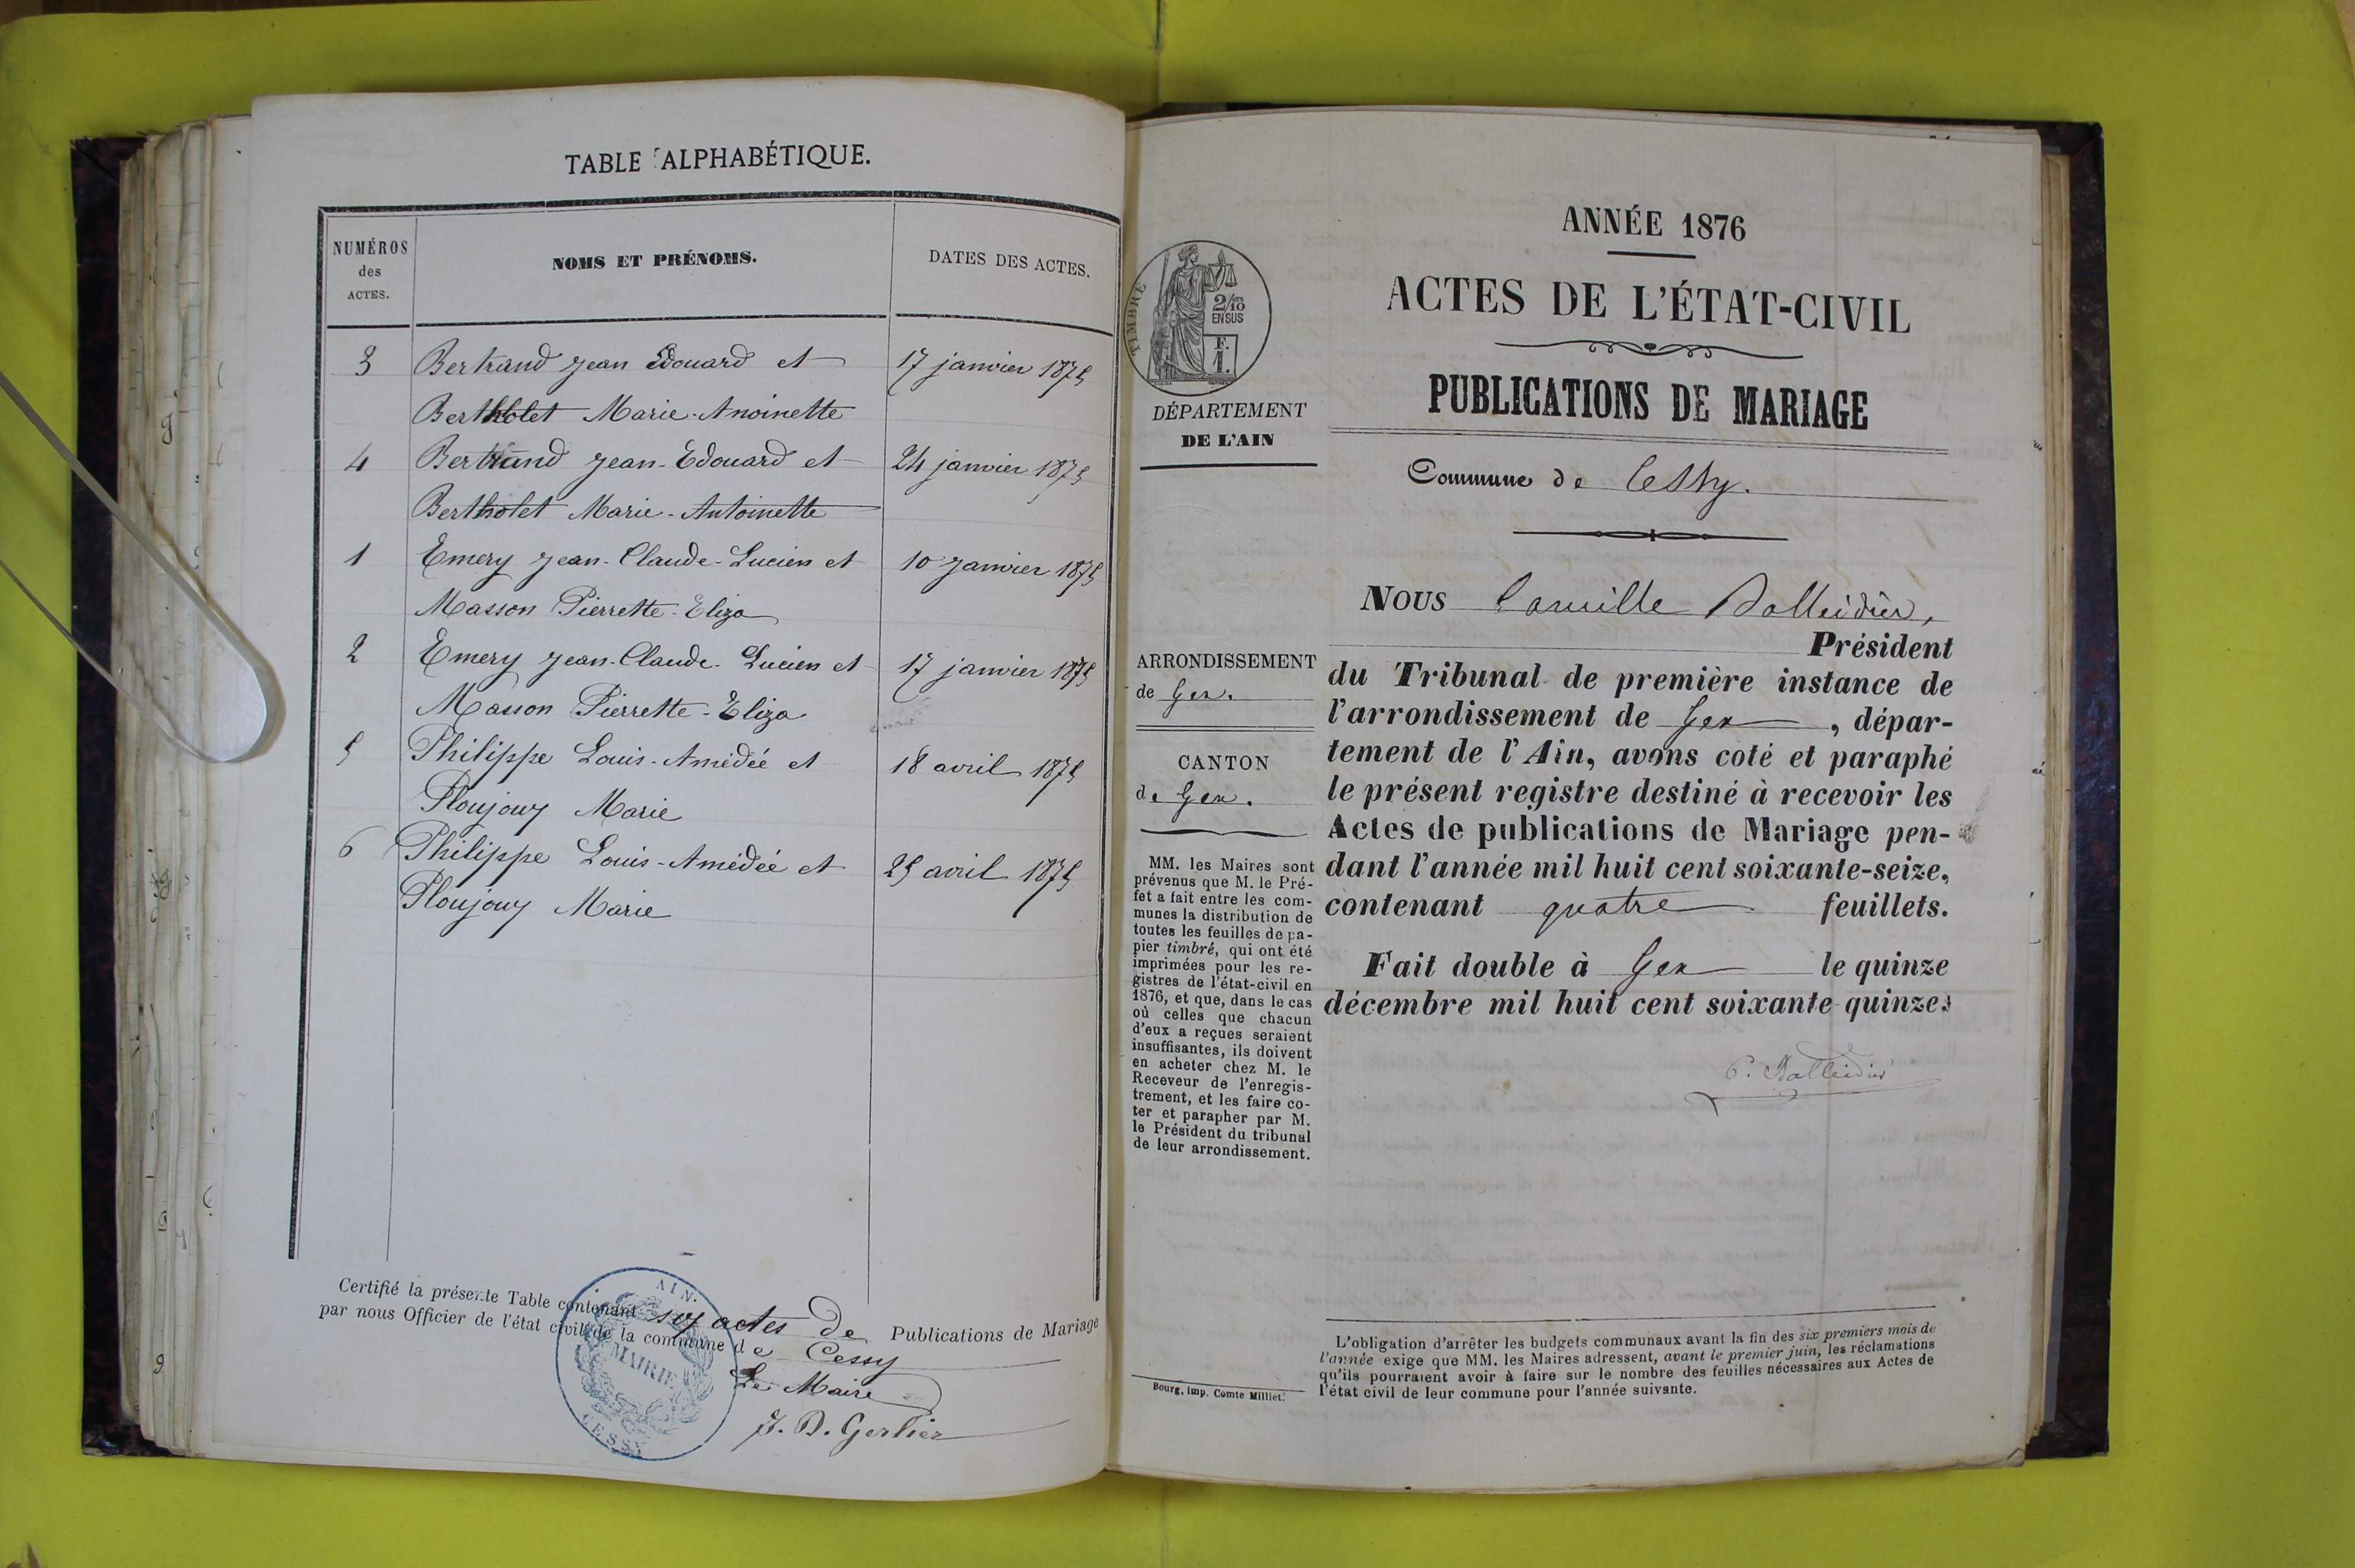 TABLE ALPHABÉTIQUE.
NUMÉROS
des
ACTES.
NOMS ET PRÉNOMS.
DATES DES ACTES.
3 Bertrand Jean Edouard et 17 janvier 1875
Bertholet Marie-Anoinette
4 Bertrand Jean-Edouard et 24 janvier 1875
Bertholet Marie-Antoinette
1 Emery Jean-Claude-Lucien et 10 janvier 1875
Masson Pierrette-Eliza
2 Emery Jean-Claude-Lucien et 17 janvier 1875
Masson Pierrette-Eliza
5 Philippe Louis-Amédée et 18 avril 1875
Ploujouy Marie
6 Philippe Louis-Amédée et 25 avril 1875
Ploujouy Marie
Certifié la présente Table contenant six actes de Publications de Mariage
par nous Officier de l'état civil de la commune de Cessy
Le Maire
J. D. Gerlier
AIN.
MAIRIE
CESSY
ANNÉE 1876
ACTES DE L'ÉTAT-CIVIL
PUBLICATIONS DE MARIAGE
Commune de Cessy.
TIMBRE
2/10
EN SUS
F.
1.
DÉPARTEMENT
DE L'AIN
ARRONDISSEMENT
de Gex.
CANTON
de Gex.
MM. les Maires sont
prévenus que M. le Pré-
fet a fait entre les com-
munes la distribution de
toutes les feuilles de pa-
pier timbré, qui ont été
imprimées pour les re-
gistres de l'état-civil en
1876, et que, dans le cas
où celles que chacun
d'eux a reçues seraient
insuffisantes, ils doivent
en acheter chez M. le
Receveur de l'enregis-
trement, et les faire co-
ter et parapher par M.
le Président du tribunal
de leur arrondissement.
Bourg, imp. Comte Milliet.
NOUS Camille Balleidier,
Président
du Tribunal de première instance de
l'arrondissement de Gex, dépar-
tement de l'Ain, avons coté et paraphé
le présent registre destiné à recevoir les
Actes de publications de Mariage pen-
dant l'année mil huit cent soixante-seize,
contenant quatre feuillets.
Fait double à Gex le quinze
décembre mil huit cent soixante-quinze.
C. Balleidier
L'obligation d'arrêter les budgets communaux avant la fin des six premiers mois de
l'année exige que MM. les Maires adressent, avant le premier juin, les réclamations
qu'ils pourraient avoir à faire sur le nombre des feuilles nécessaires aux Actes de
l'état civil de leur commune pour l'année suivante.